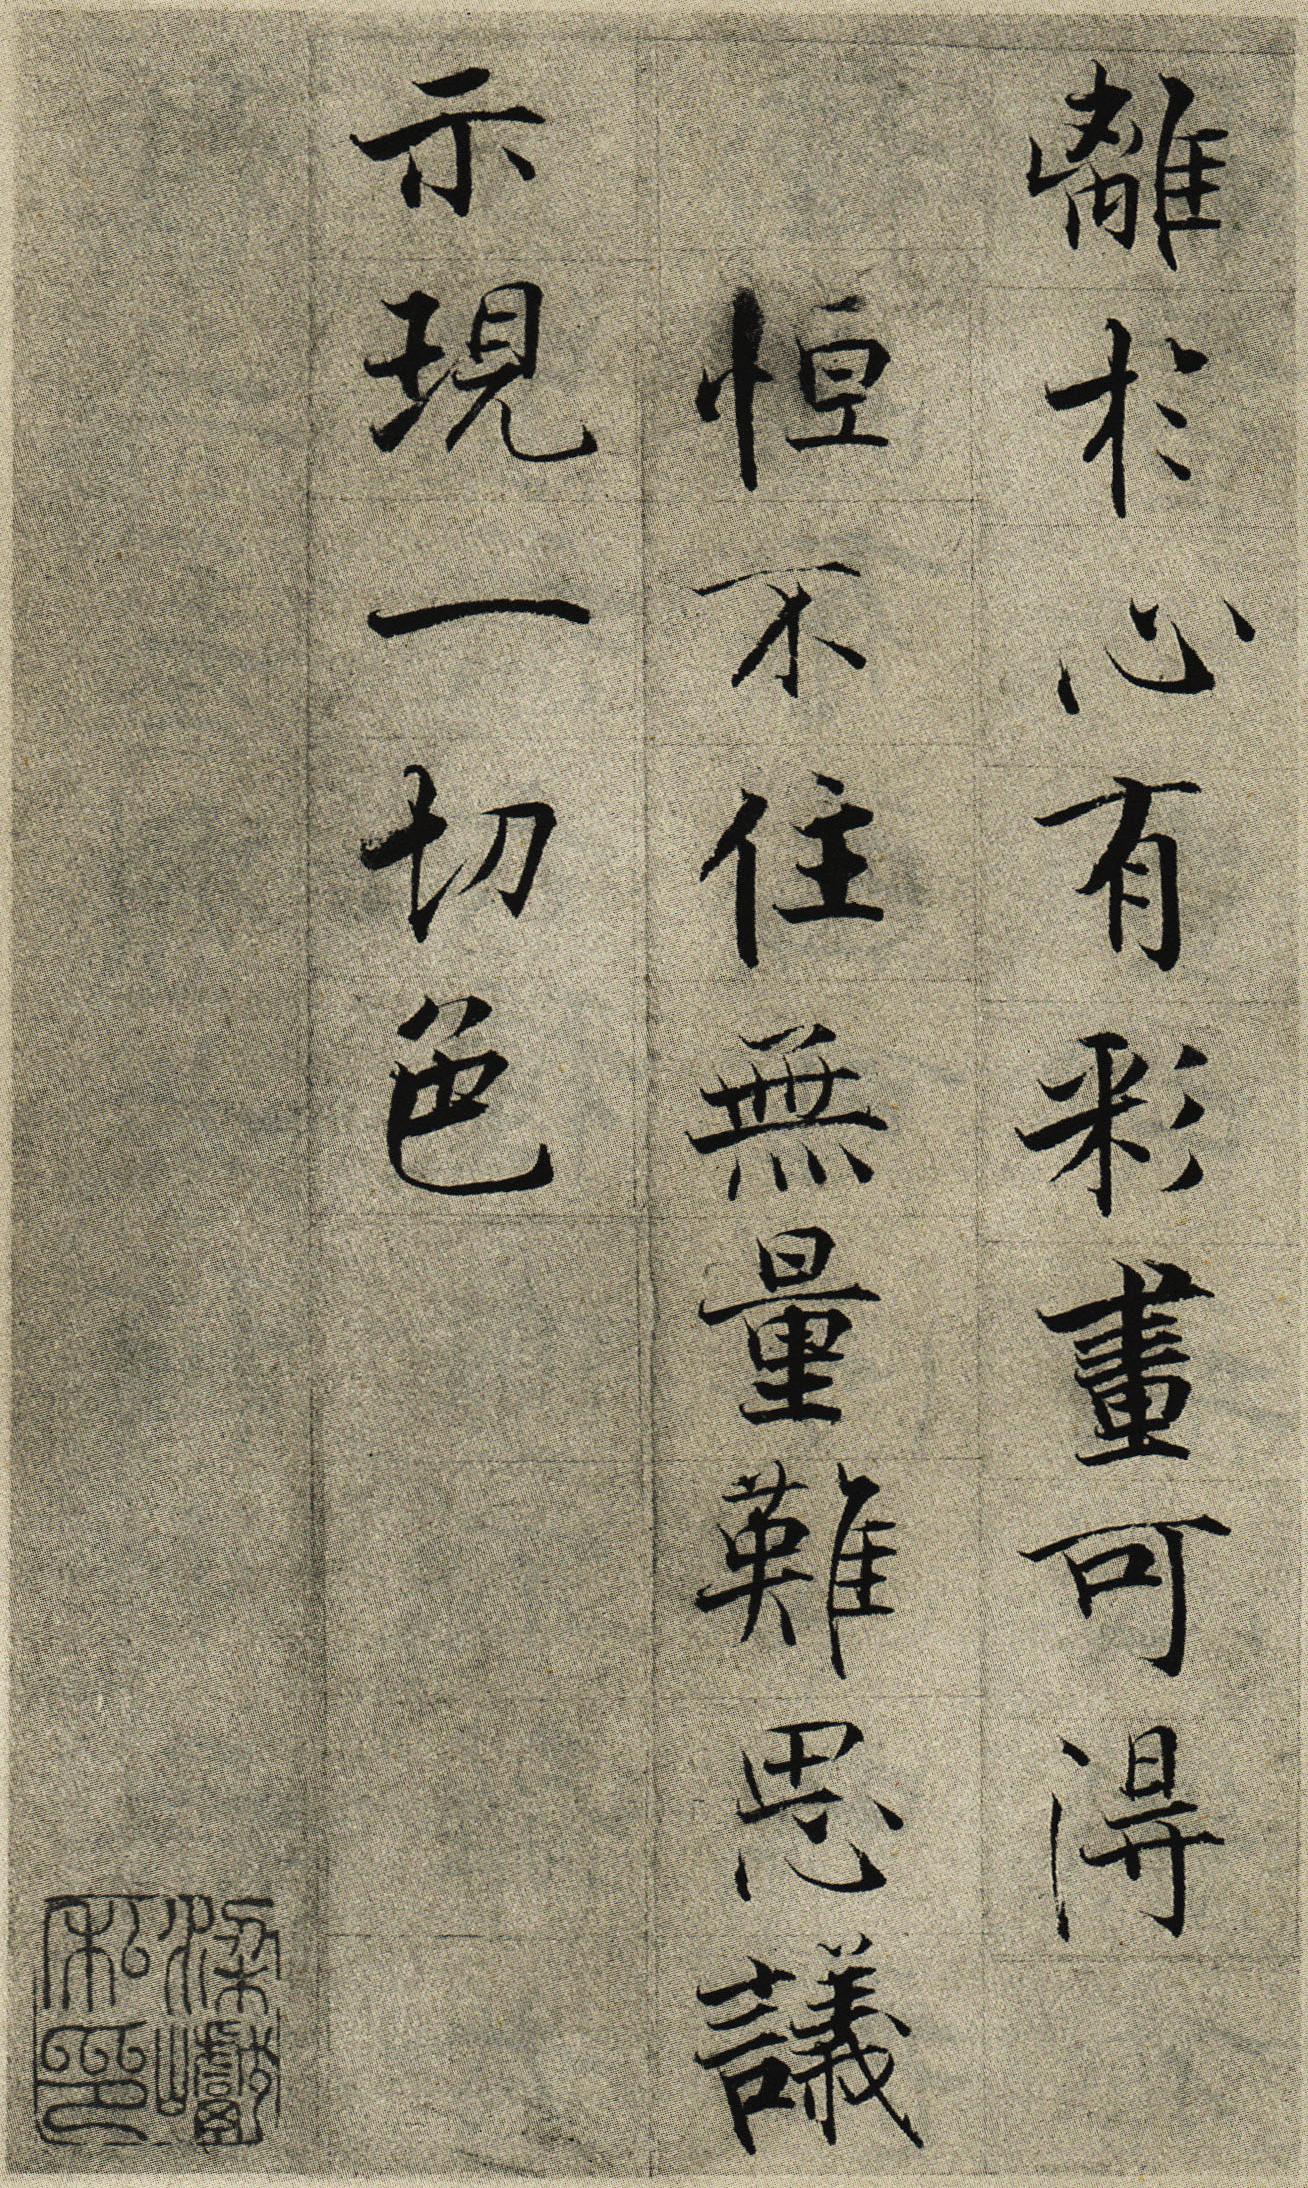 離於心有彩畫可得
恒不住無量難思議
示現一切色